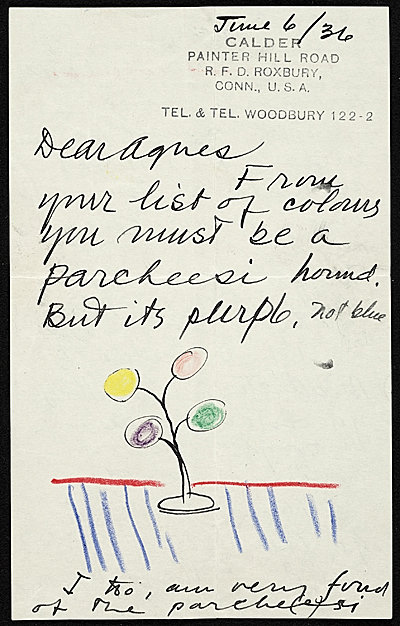 June 6/36
CALDER
PAINTER HILL ROAD
R. F. D. ROXBURY,
CONN., U. S. A.
TEL. & TEL. WOODBURY 122-2
Dear Agnes
From
your list of colours
you must be a
parcheesi hound.
But its purple, not blue
I too, am very fond
of the parcheesi